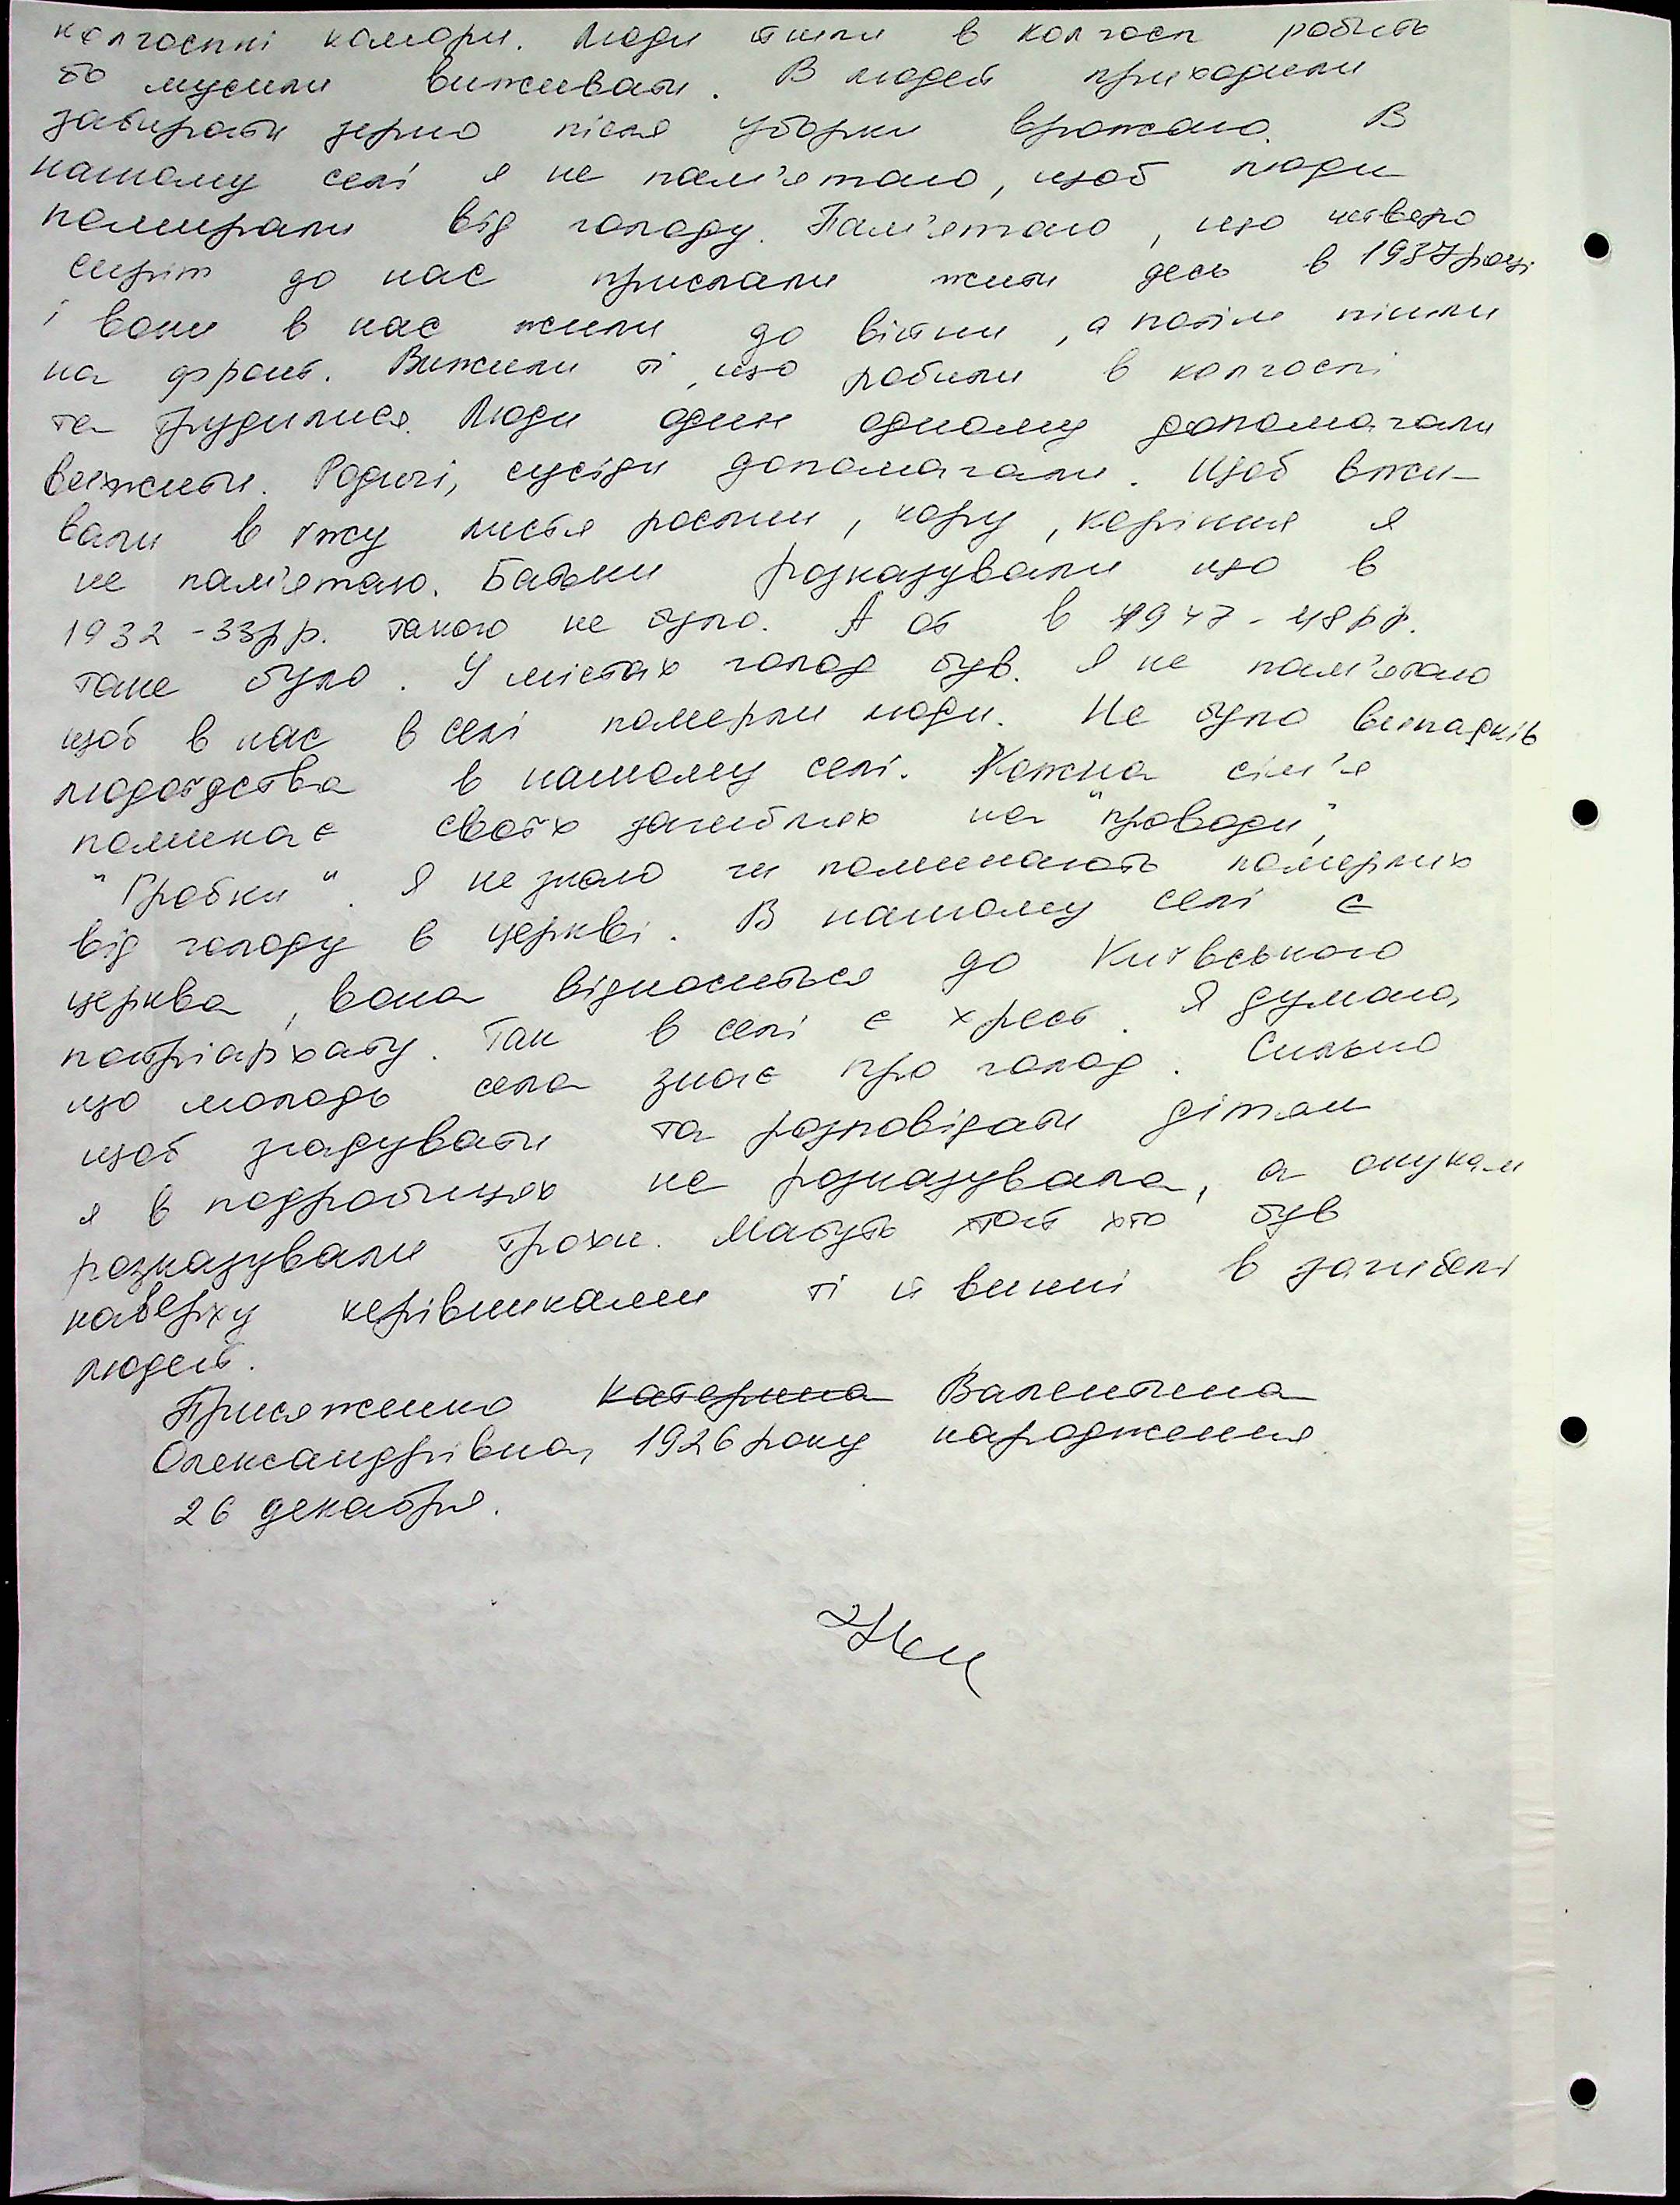 колгоспні комори. Люди йшли в колгосп робить
бо мусили виживати. В людей приходили
забирати зерно після уборки врожаю. В
нашому селі я не пам'ятаю, щоб люди
помирали від голоду. Пам'ятаю, що четверо
сиріт до нас прислали жити десь в 1937 році
і вони в нас жили до війни, а потім пішли
на фронт. Вижили ті, що робили в колгоспі
та трудилися. Люди один одному допомагали
вижити. Родичі, сусіди допомагали. Щоб вжи-
вали в їжу листя рослин, кору, коріння я
не пам'ятаю. Батьки розказували що в
1932-33рр. такого не було. А от в 1947-48рр.
таке було. У містах голод був. Я не пам'ятаю
щоб в нас в селі померли люди. Не було випадків
людоїдства в нашому селі. Кожна сім'я
поминає своїх загиблих на "проводи",
"Гробки". Я не знаю чи поминають померлих
від голоду в церкві. В нашому селі є
церква, вона відноситься до Київського
патріархату. Так в селі є хрест. Я думаю,
що молодь села знає про голод. Сильно
щоб згадувати та розповідати дітям
я в подробицях не розказувала, а онукам
розказували трохи. Мабуть той хто був
наверху керівниками ті й винні в загибелі
людей.
Присяженко Катерина Валентина
Олександрівна, 1926 року народження
26 декабря.